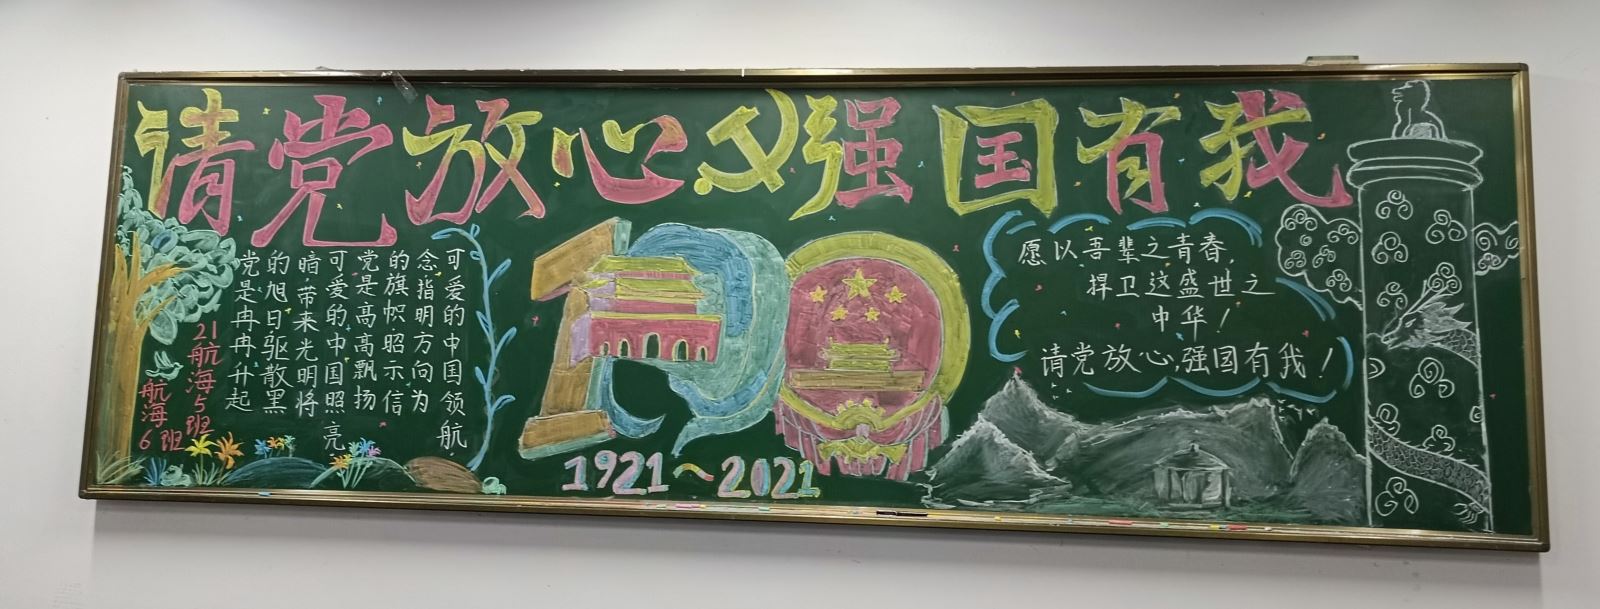 请党放心强国有我
党是冉冉升起
的旭日驱散黑
暗带来光明将
可爱的中国照亮.
党是高高飘扬
的旗帜昭示信
念指明方向为
可爱的中国领航.
21航海5班
航海6班
1921~2021
愿以吾辈之青春,
捍卫这盛世之
中华!
请党放心,强国有我!